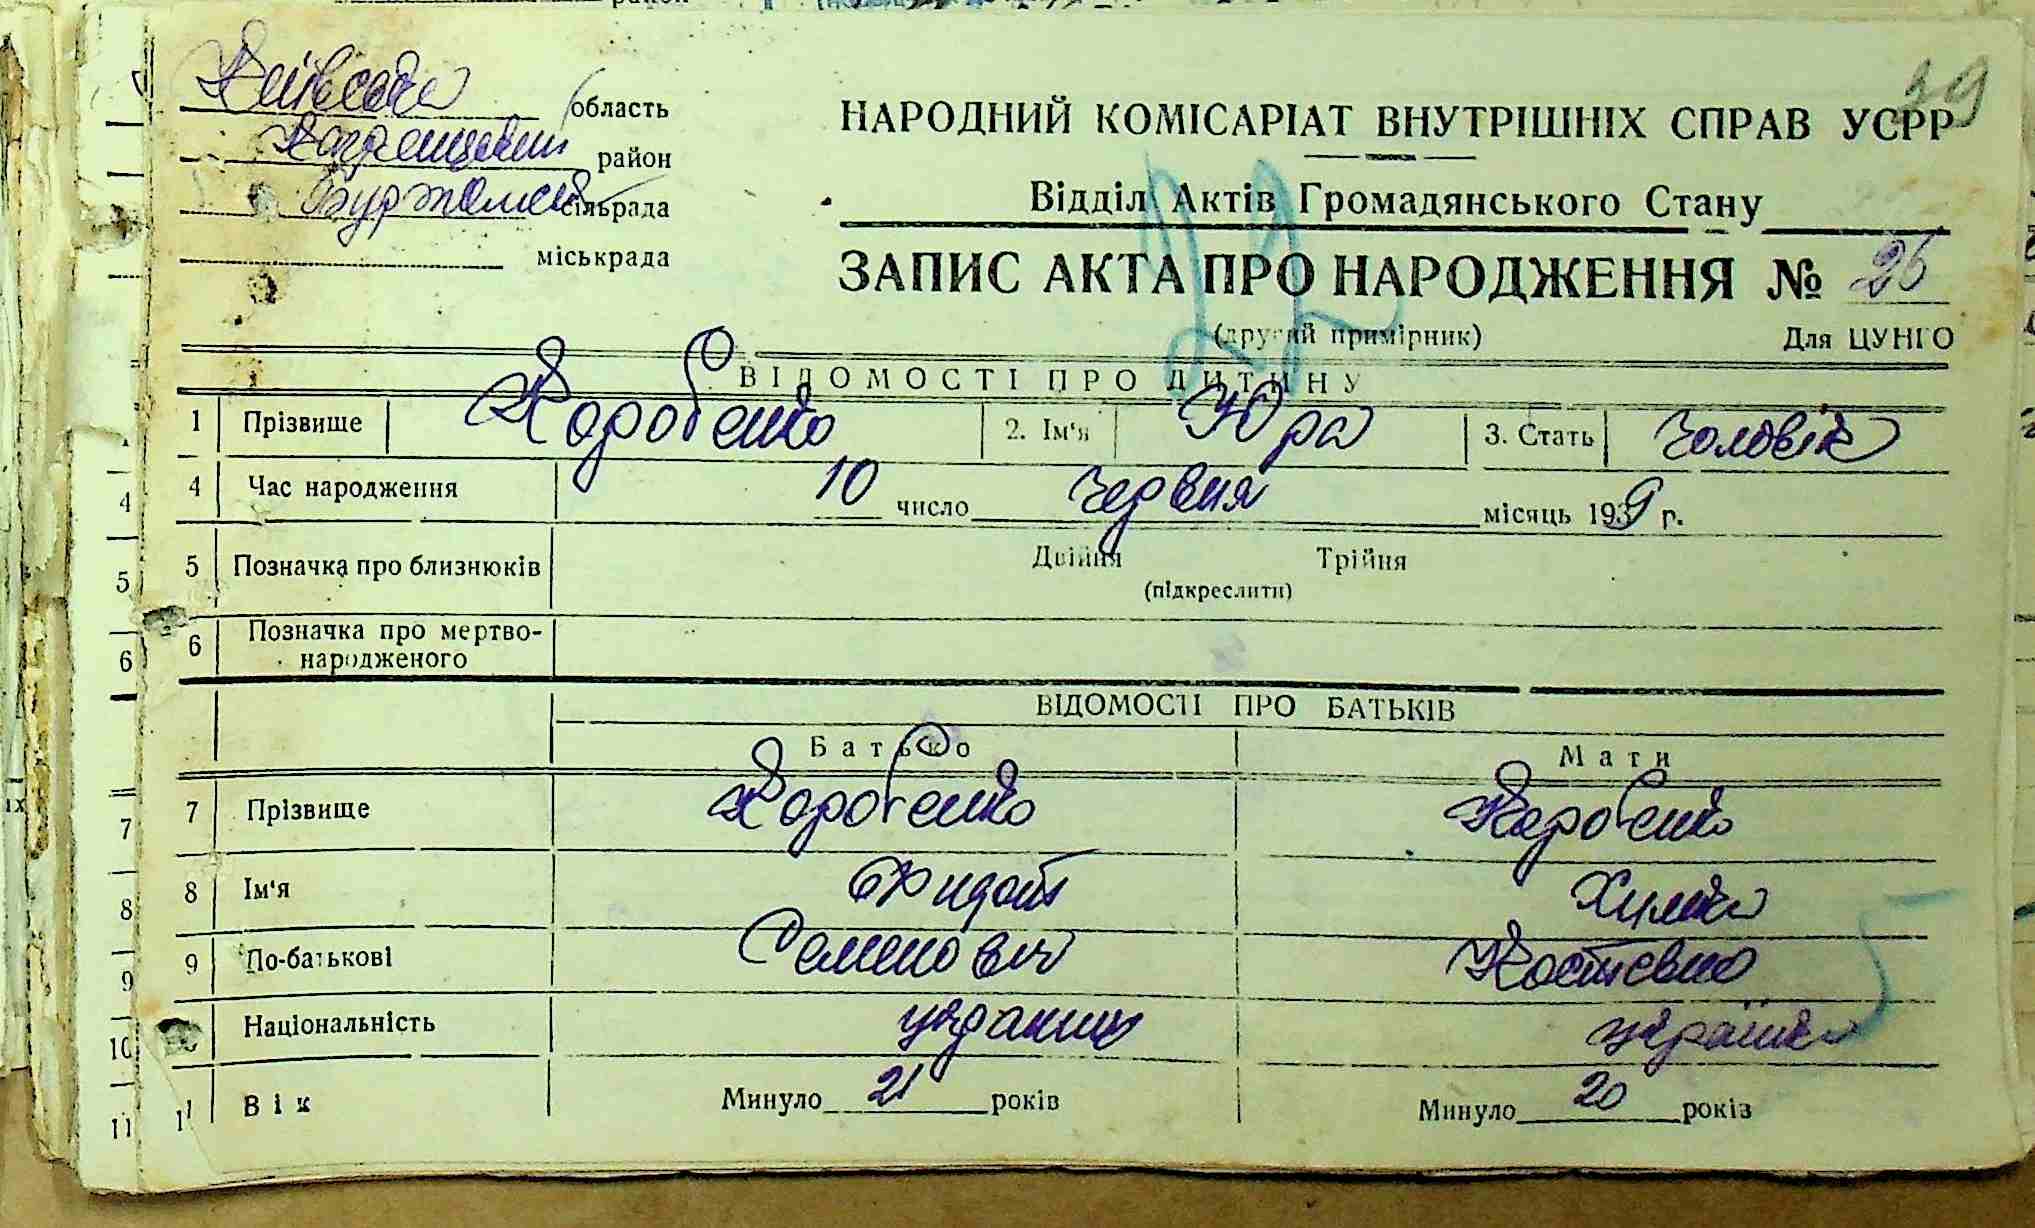 39
Київська область
район
сільрада
міськрада
НАРОДНИЙ КОМІСАРІАТ ВНУТРІШНІХ СПРАВ УСРР
Відділ Актів Громадянського Стану
ЗАПИС АКТА ПРО НАРОДЖЕННЯ № 26
(другий примірник) Для ЦУНГО
22
ВІДОМОСТІ ПРО ДИТИНУ
1 Прізвище Коробенко 2. Ім'я Юра 3. Стать чоловік
4 Час народження 10 число червня місяць 1939 р.
5 Позначка про близнюків Двійня Трійня
(підкреслити)
6 Позначка про мертво-
народженого
ВІДОМОСТІ ПРО БАТЬКІВ
Батько Мати
7 Прізвище Коробенко Коробенко
8 Ім'я Химка
9 По-батькові Семенович Костєвна
Національність українець українка
11 Вік Минуло 21 років Минуло 20 років
4
5
6
7
8
9
10
11